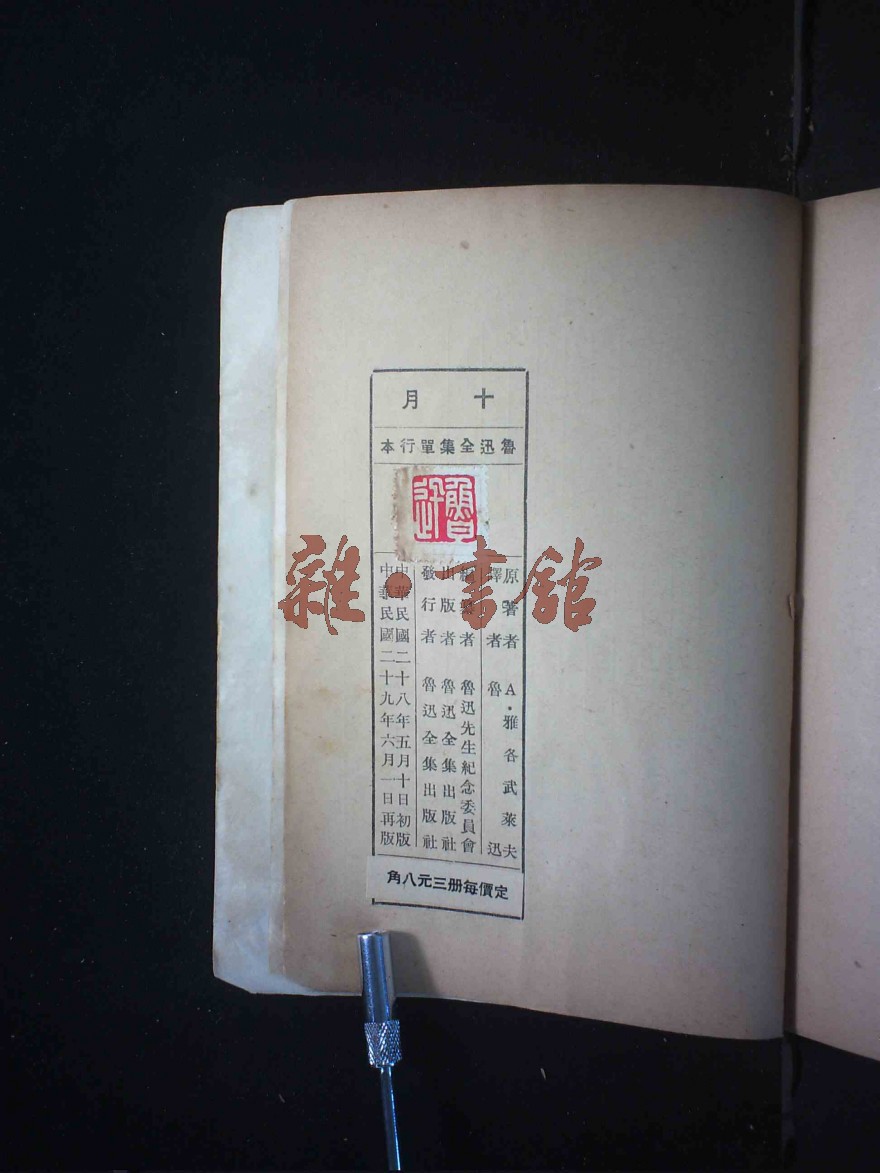 十月
魯迅全集單行本
魯迅
原著者 A·雅各武萊夫
譯者 魯迅
編纂者 魯迅先生紀念委員會
出版者 魯迅全集出版社
發行者 魯迅全集出版社
中華民國二十八年五月十日初版
中華民國二十九年六月一日再版
定價每册三元八角
雜·書館